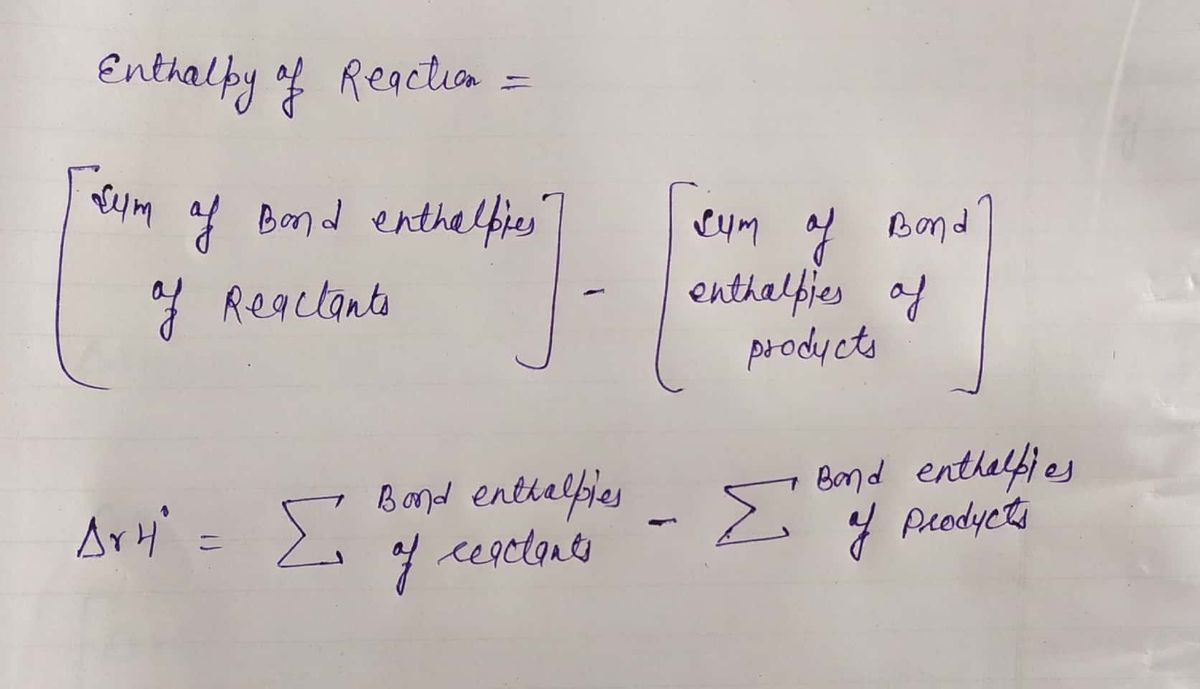 Enthalpy of Reaction =
[Sum of Bond enthalpies of Reactants] - [Sum of Bond enthalpies of products]
ΔrH° = Σ Bond enthalpies of reactants - Σ Bond enthalpies of Products